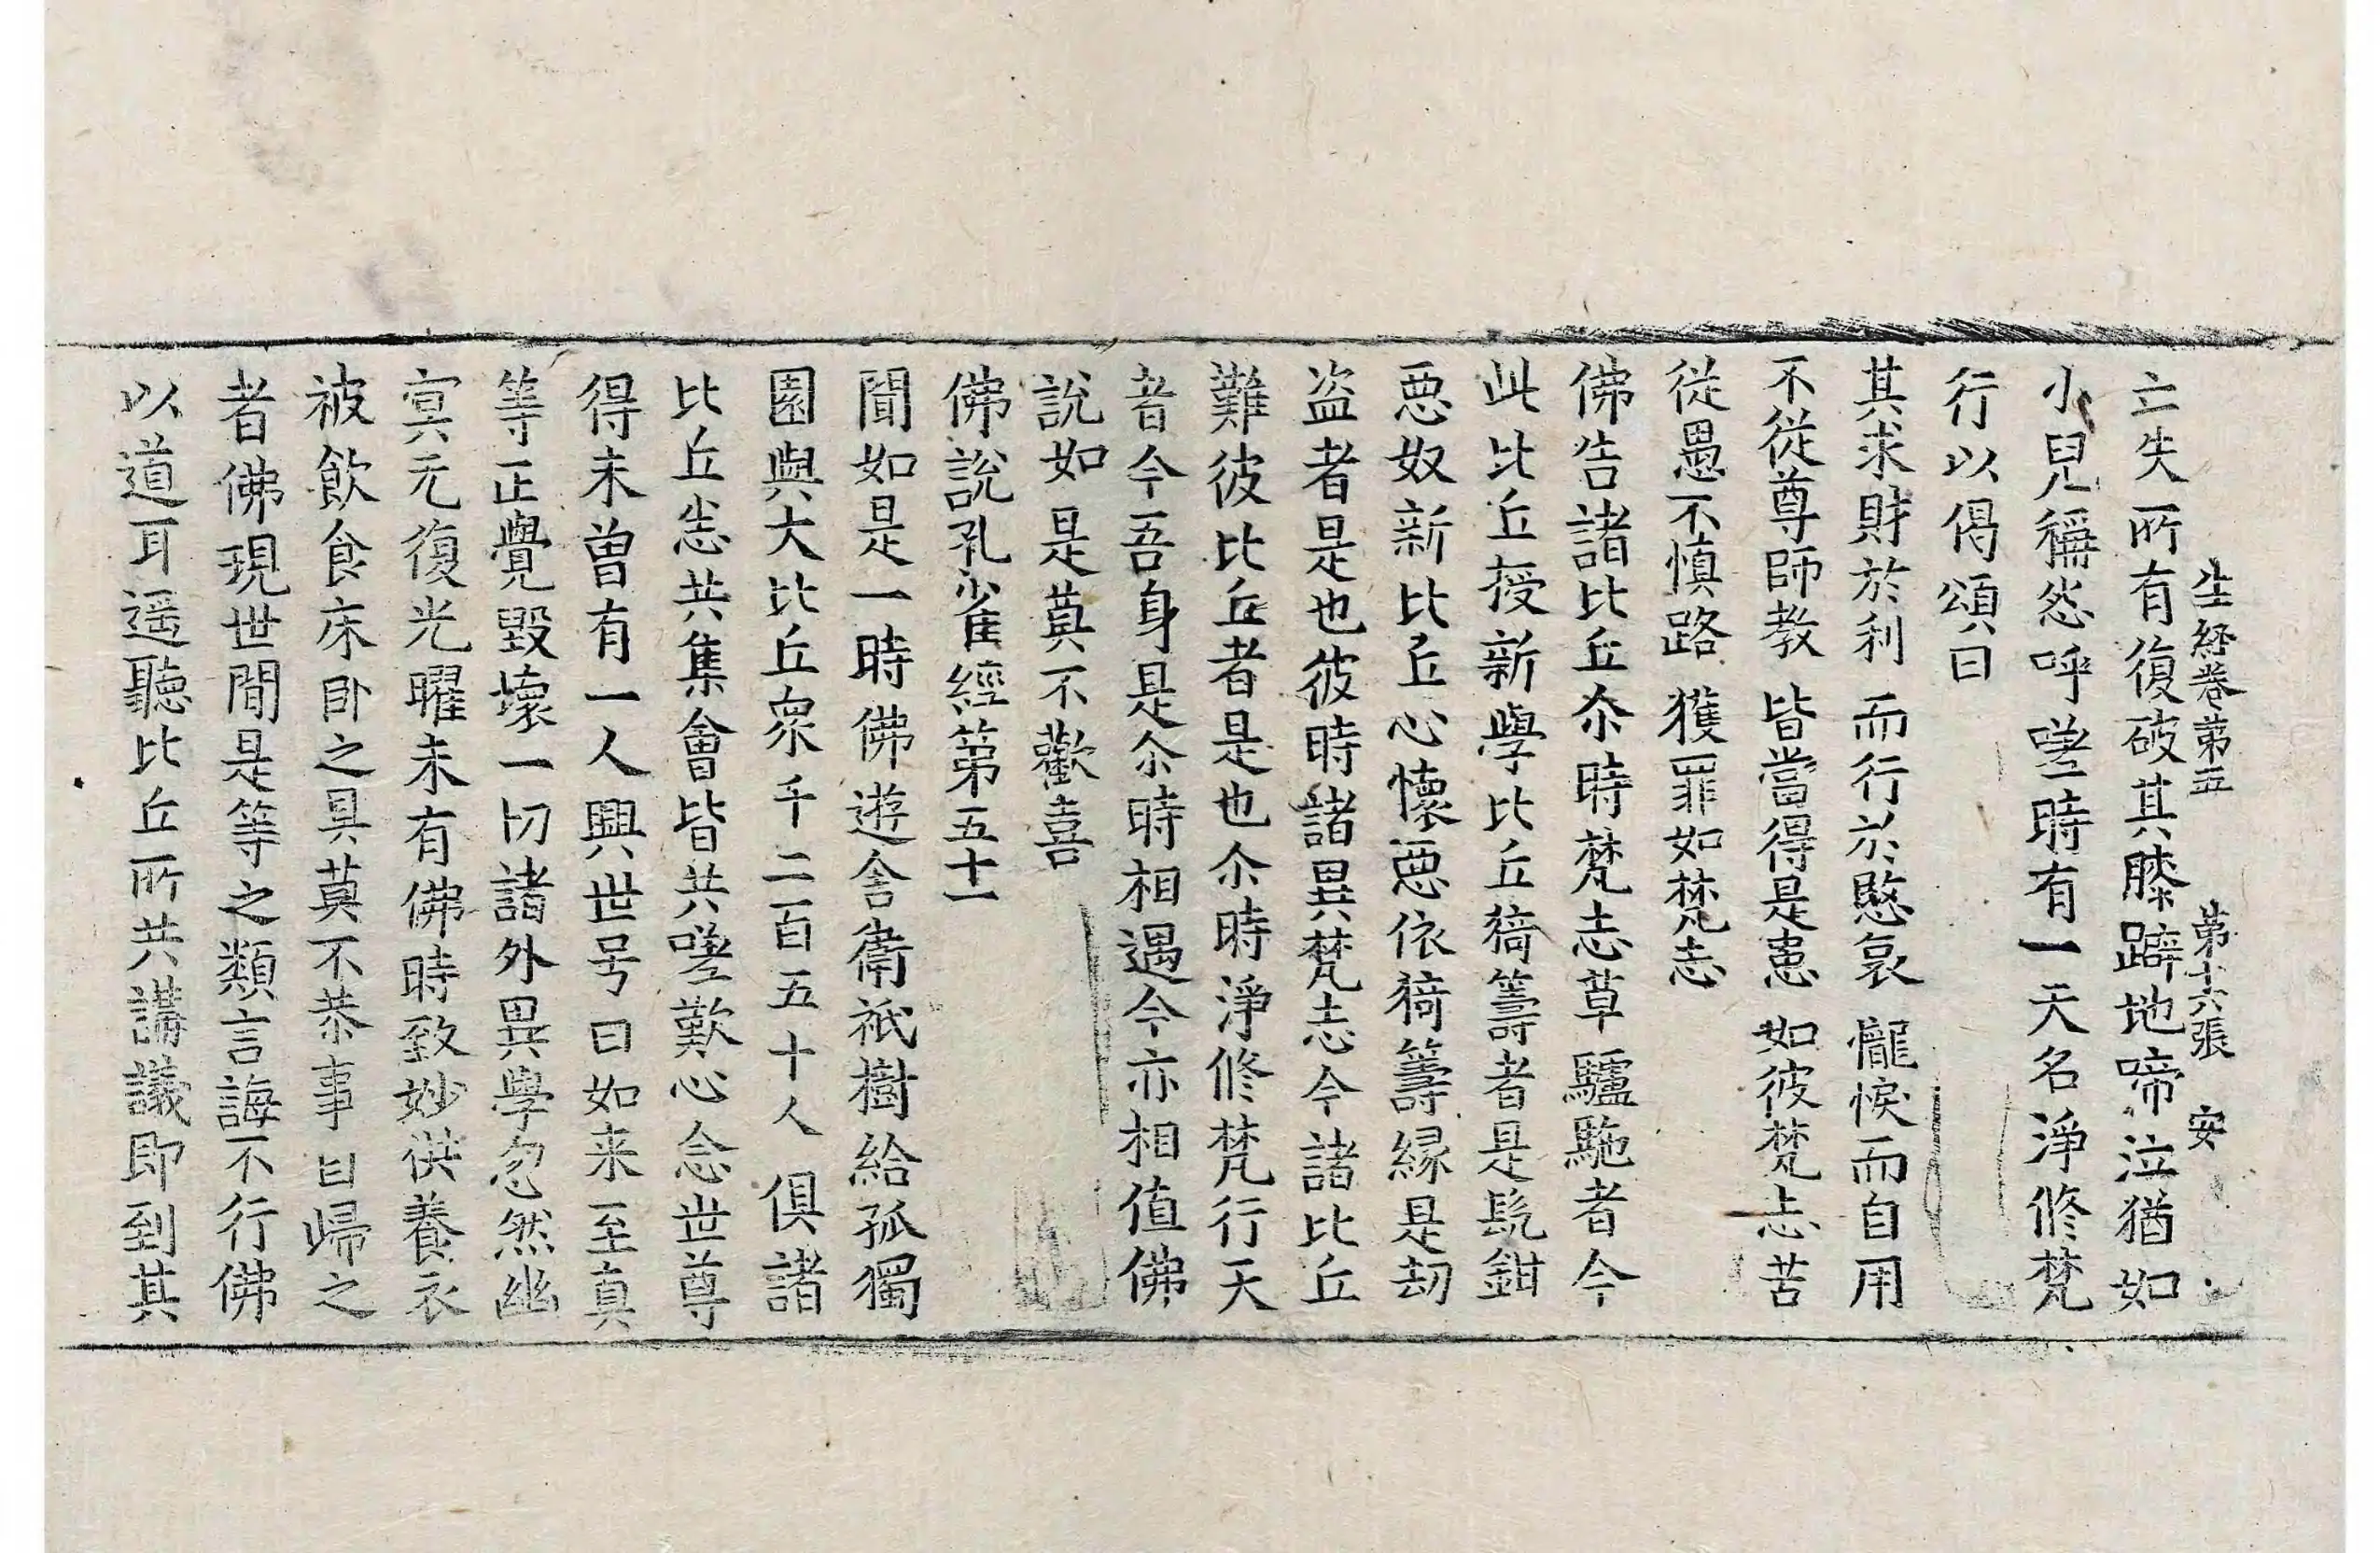 生経卷第五 第十六張 安
亡失所有復破其膝躃地啼泣猶如
小兒稱怨呼嗟時有一天名淨修梵
行以偈頌曰
其求財於利 而行於慜哀 𢤱悷而自用
不從尊師教 皆當得是恚 如彼梵志苦
従愚不慎路 獲罪如梵志
佛告諸比丘尒時梵志草驢駞者今
此比丘授新學比丘猗籌者是髡鉗
惡奴新比丘心懷惡依猗籌縁是劫
盗者是也彼時諸異梵志今諸比丘
難彼比丘者是也尒時淨修梵行天
者今吾身是尒時相遇今亦相值佛
說如是莫不歡喜
佛說孔雀經第五十一
聞如是一時佛遊舍衛祇樹給孤獨
園與大比丘衆千二百五十人俱諸
比丘悉共集會皆共嗟歎心念世尊
得未曽有一人興世号曰如来至真
等正覺毀壞一切諸外異學忽然幽
冥无復光曜未有佛時致妙供養衣
被飲食床卧之具莫不恭事自歸之
者佛現世間是等之類言誨不行佛
以道耳遥聽比丘所共講議即到其